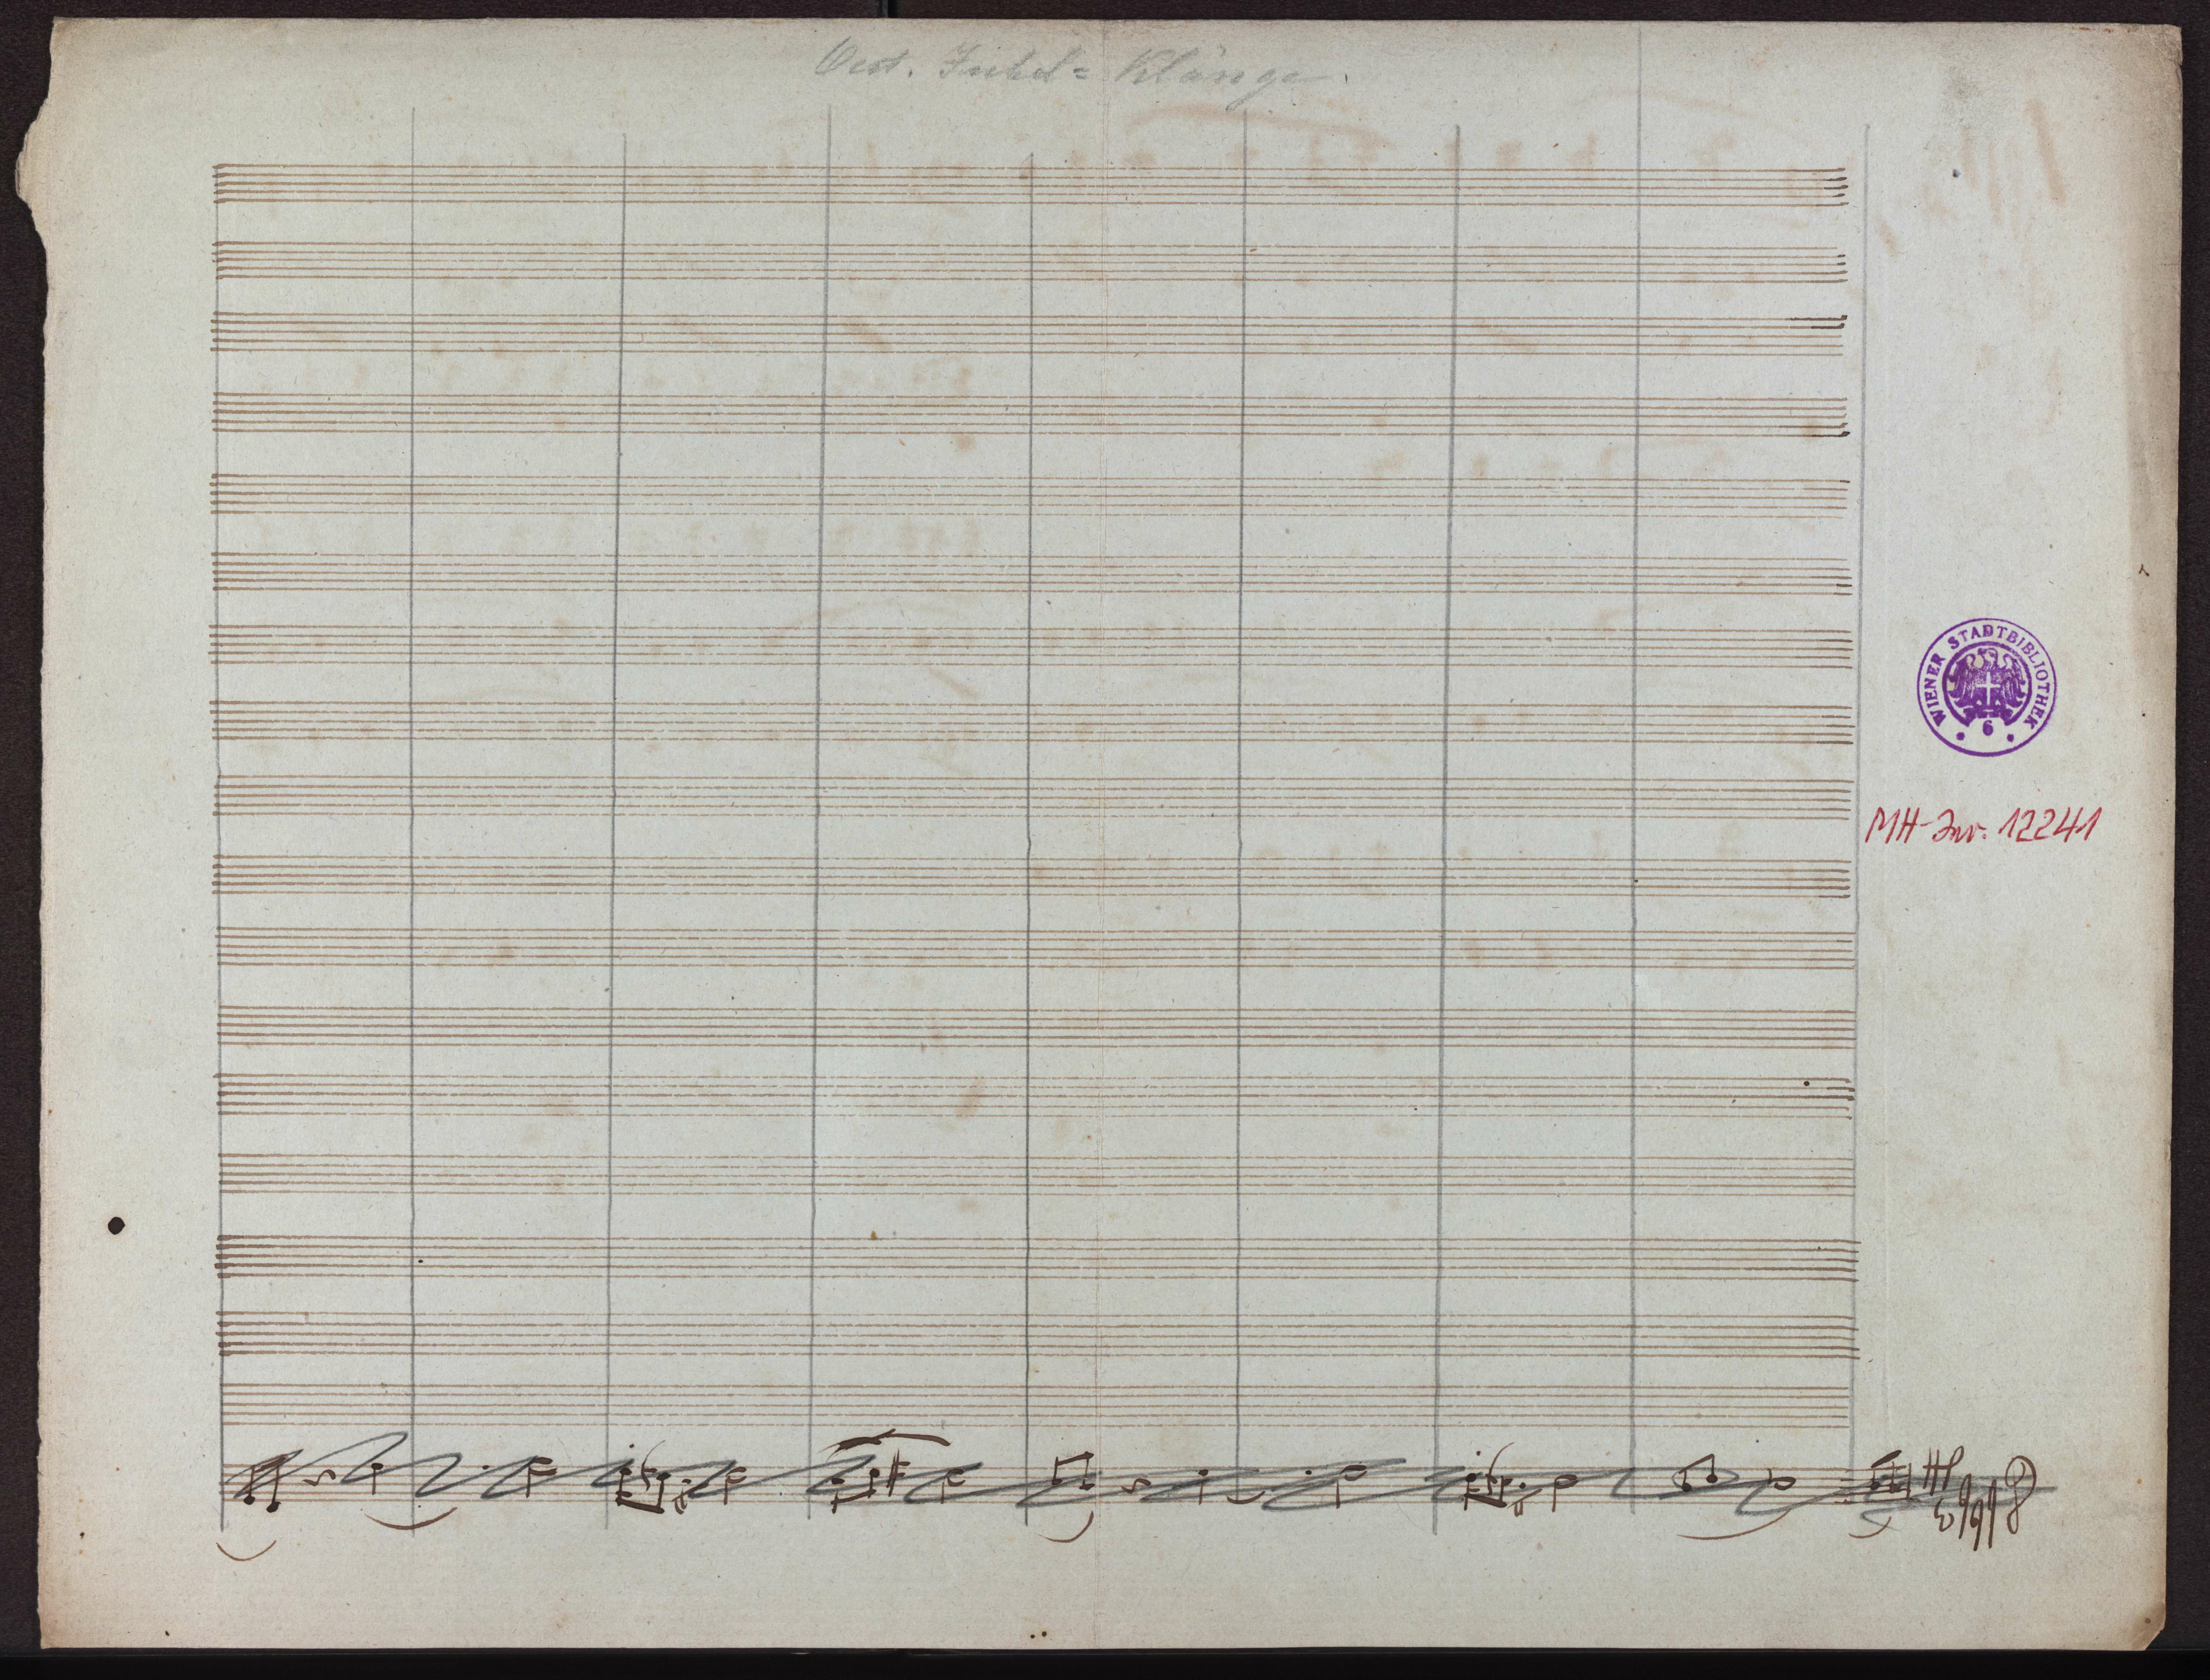 Oest. Jubel= Klänge.
WIENER STADTBIBLIOTHEK
6
MH-Inv. 12241